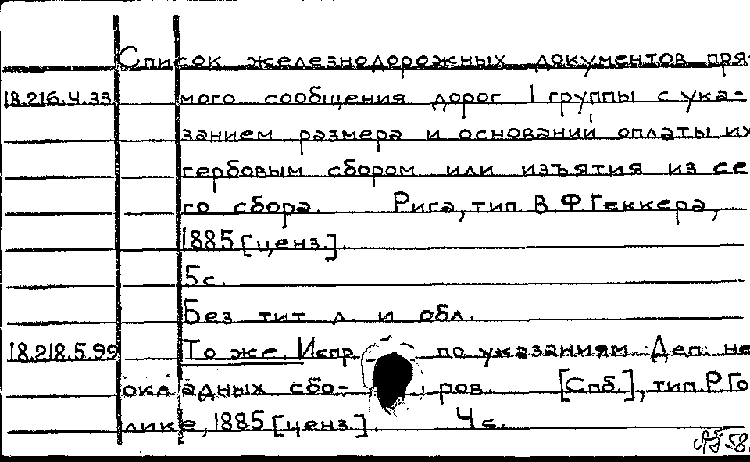 Список железнодорожных документов пря-
18.216.4.33 мого сообщения дорог I группы с ука-
занием размера и оснований оплаты их
гербовым сбором или изъятия из се-
го сбора. Рига, тип. В.Ф. Геккера,
1885 [ценз.].
5 с.
Без тит. л. и обл.
18.218.5.99 То же. Испр. по указаниям Деп. не-
окладных сбо- ров. [Спб.], тип. Р. Го-
лике, 1885 [ценз.]. 4 с.
58